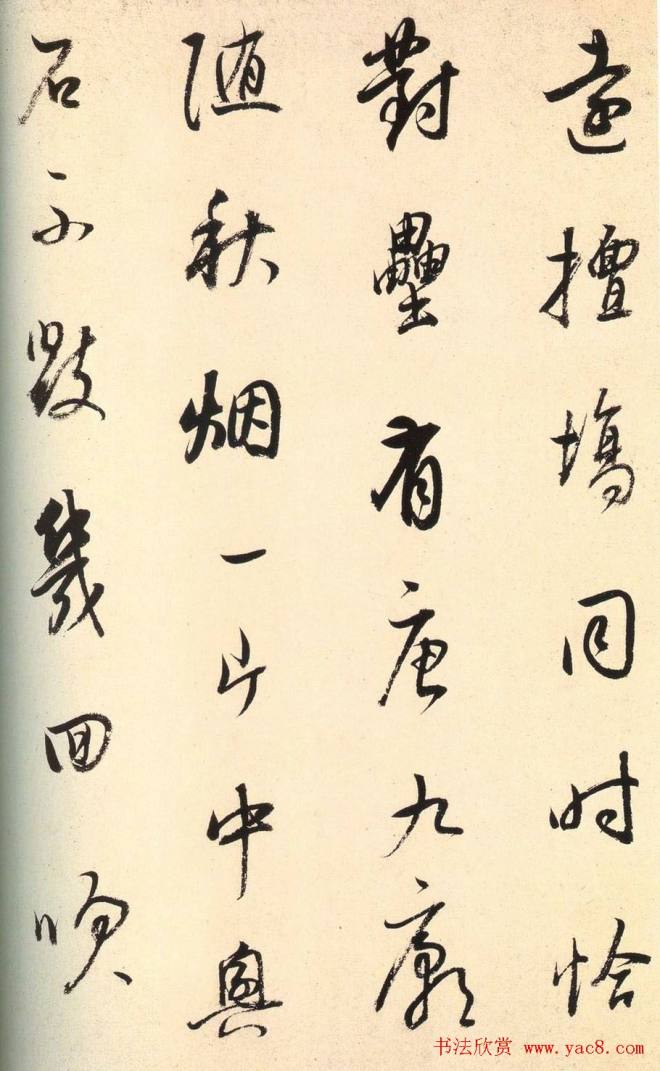 遠擅塲同时恰
對壘有唐九廟
随秋烟一片中興
石不毀幾回吹
书法欣赏 www.yac8.com